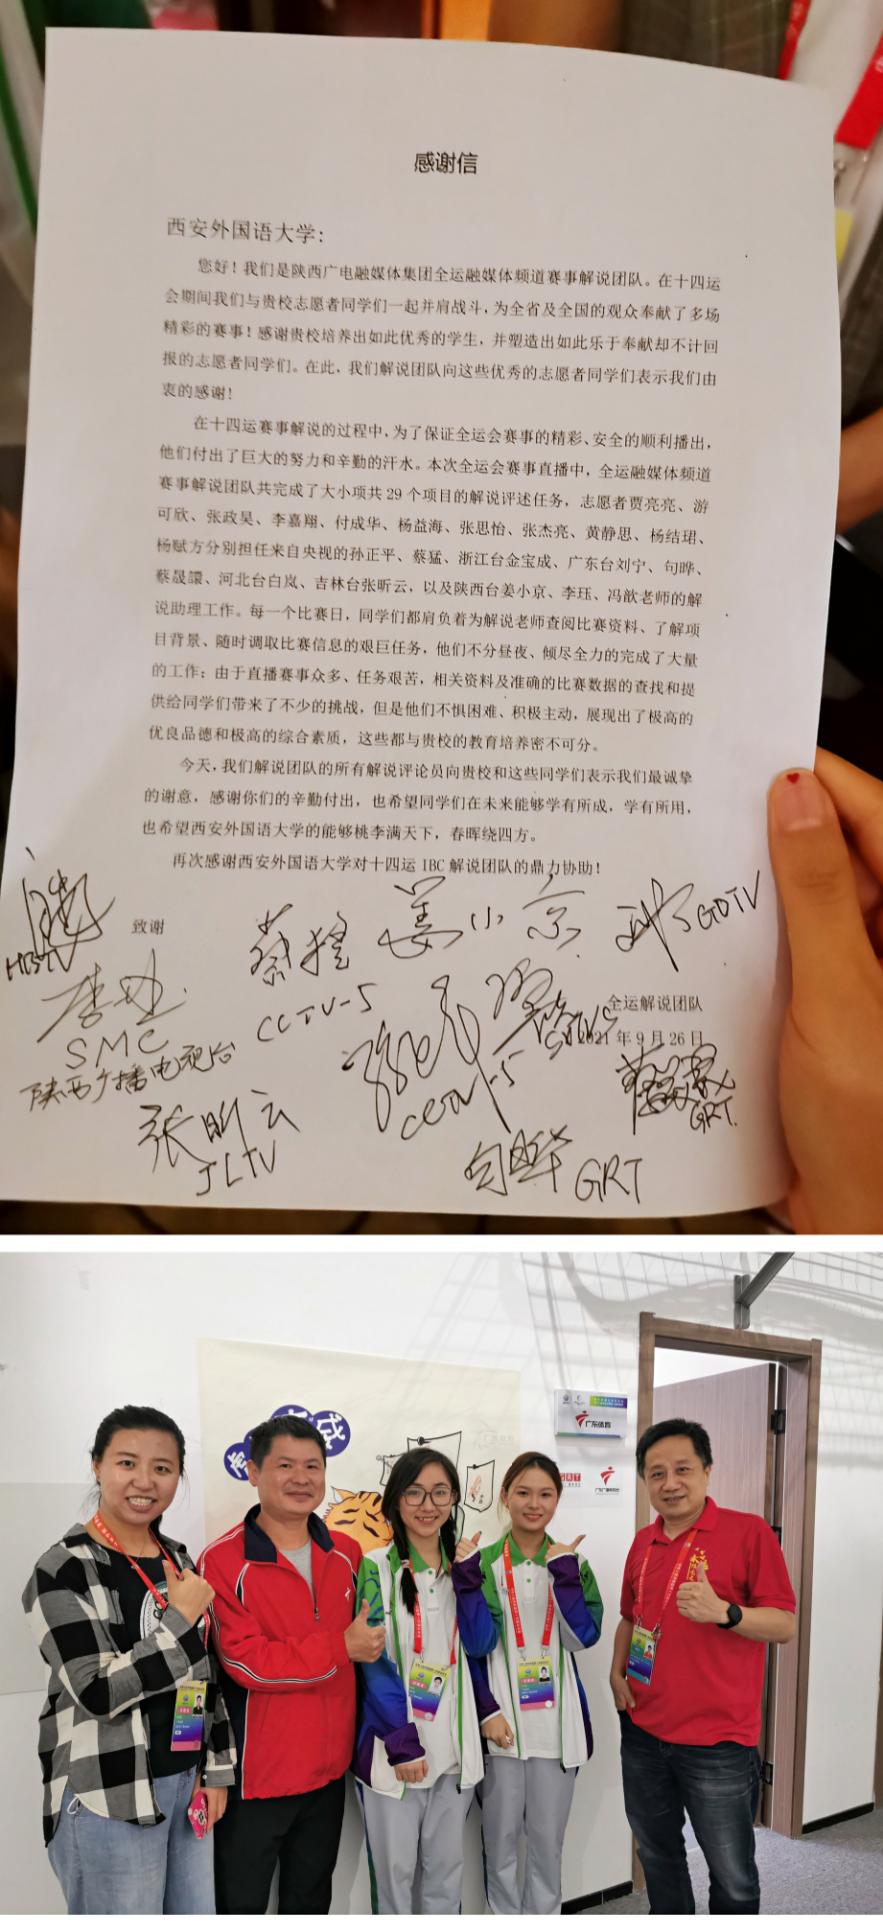 感谢信
西安外国语大学：
您好！我们是陕西广电融媒体集团全运融媒体频道赛事解说团队。在十四运
会期间我们与贵校志愿者同学们一起并肩战斗，为全省及全国的观众奉献了多场
精彩的赛事！感谢贵校培养出如此优秀的学生，并塑造出如此乐于奉献却不计回
报的志愿者同学们。在此，我们解说团队向这些优秀的志愿者同学们表示我们由
衷的感谢！
在十四运赛事解说的过程中，为了保证全运会赛事的精彩、安全的顺利播出，
他们付出了巨大的努力和辛勤的汗水。本次全运会赛事直播中，全运融媒体频道
赛事解说团队共完成了大小项共 29 个项目的解说评述任务，志愿者贾亮亮、游
可欣、张政昊、李嘉翔、付成华、杨益海、张思怡、张杰亮、黄静思、杨结珺、
杨赋方分别担任来自央视的孙正平、蔡猛、浙江台金宝成、广东台刘宁、句晔、
蔡晟譞、河北台白岚、吉林台张昕云，以及陕西台姜小京、李珏、冯歆老师的解
说助理工作。每一个比赛日，同学们都肩负着为解说老师查阅比赛资料、了解项
目背景、随时调取比赛信息的艰巨任务，他们不分昼夜、倾尽全力的完成了大量
的工作；由于直播赛事众多、任务艰苦，相关资料及准确的比赛数据的查找和提
供给同学们带来了不少的挑战，但是他们不惧困难、积极主动，展现出了极高的
优良品德和极高的综合素质，这些都与贵校的教育培养密不可分。
今天，我们解说团队的所有解说评论员向贵校和这些同学们表示我们最诚挚
的谢意，感谢你们的辛勤付出，也希望同学们在未来能够学有所成，学有所用，
也希望西安外国语大学的能够桃李满天下，春晖绕四方。
再次感谢西安外国语大学对十四运 IBC 解说团队的鼎力协助！
致谢
蔡猛 姜小京 刘宁 GDTV
CCTV-5
李珏
SMC
陕西广播电视台
全运解说团队
2021 年 9 月 26 日
CCTV-5
张昕云
JLTV
句晔 GRT
GRT
广东体育
GRT